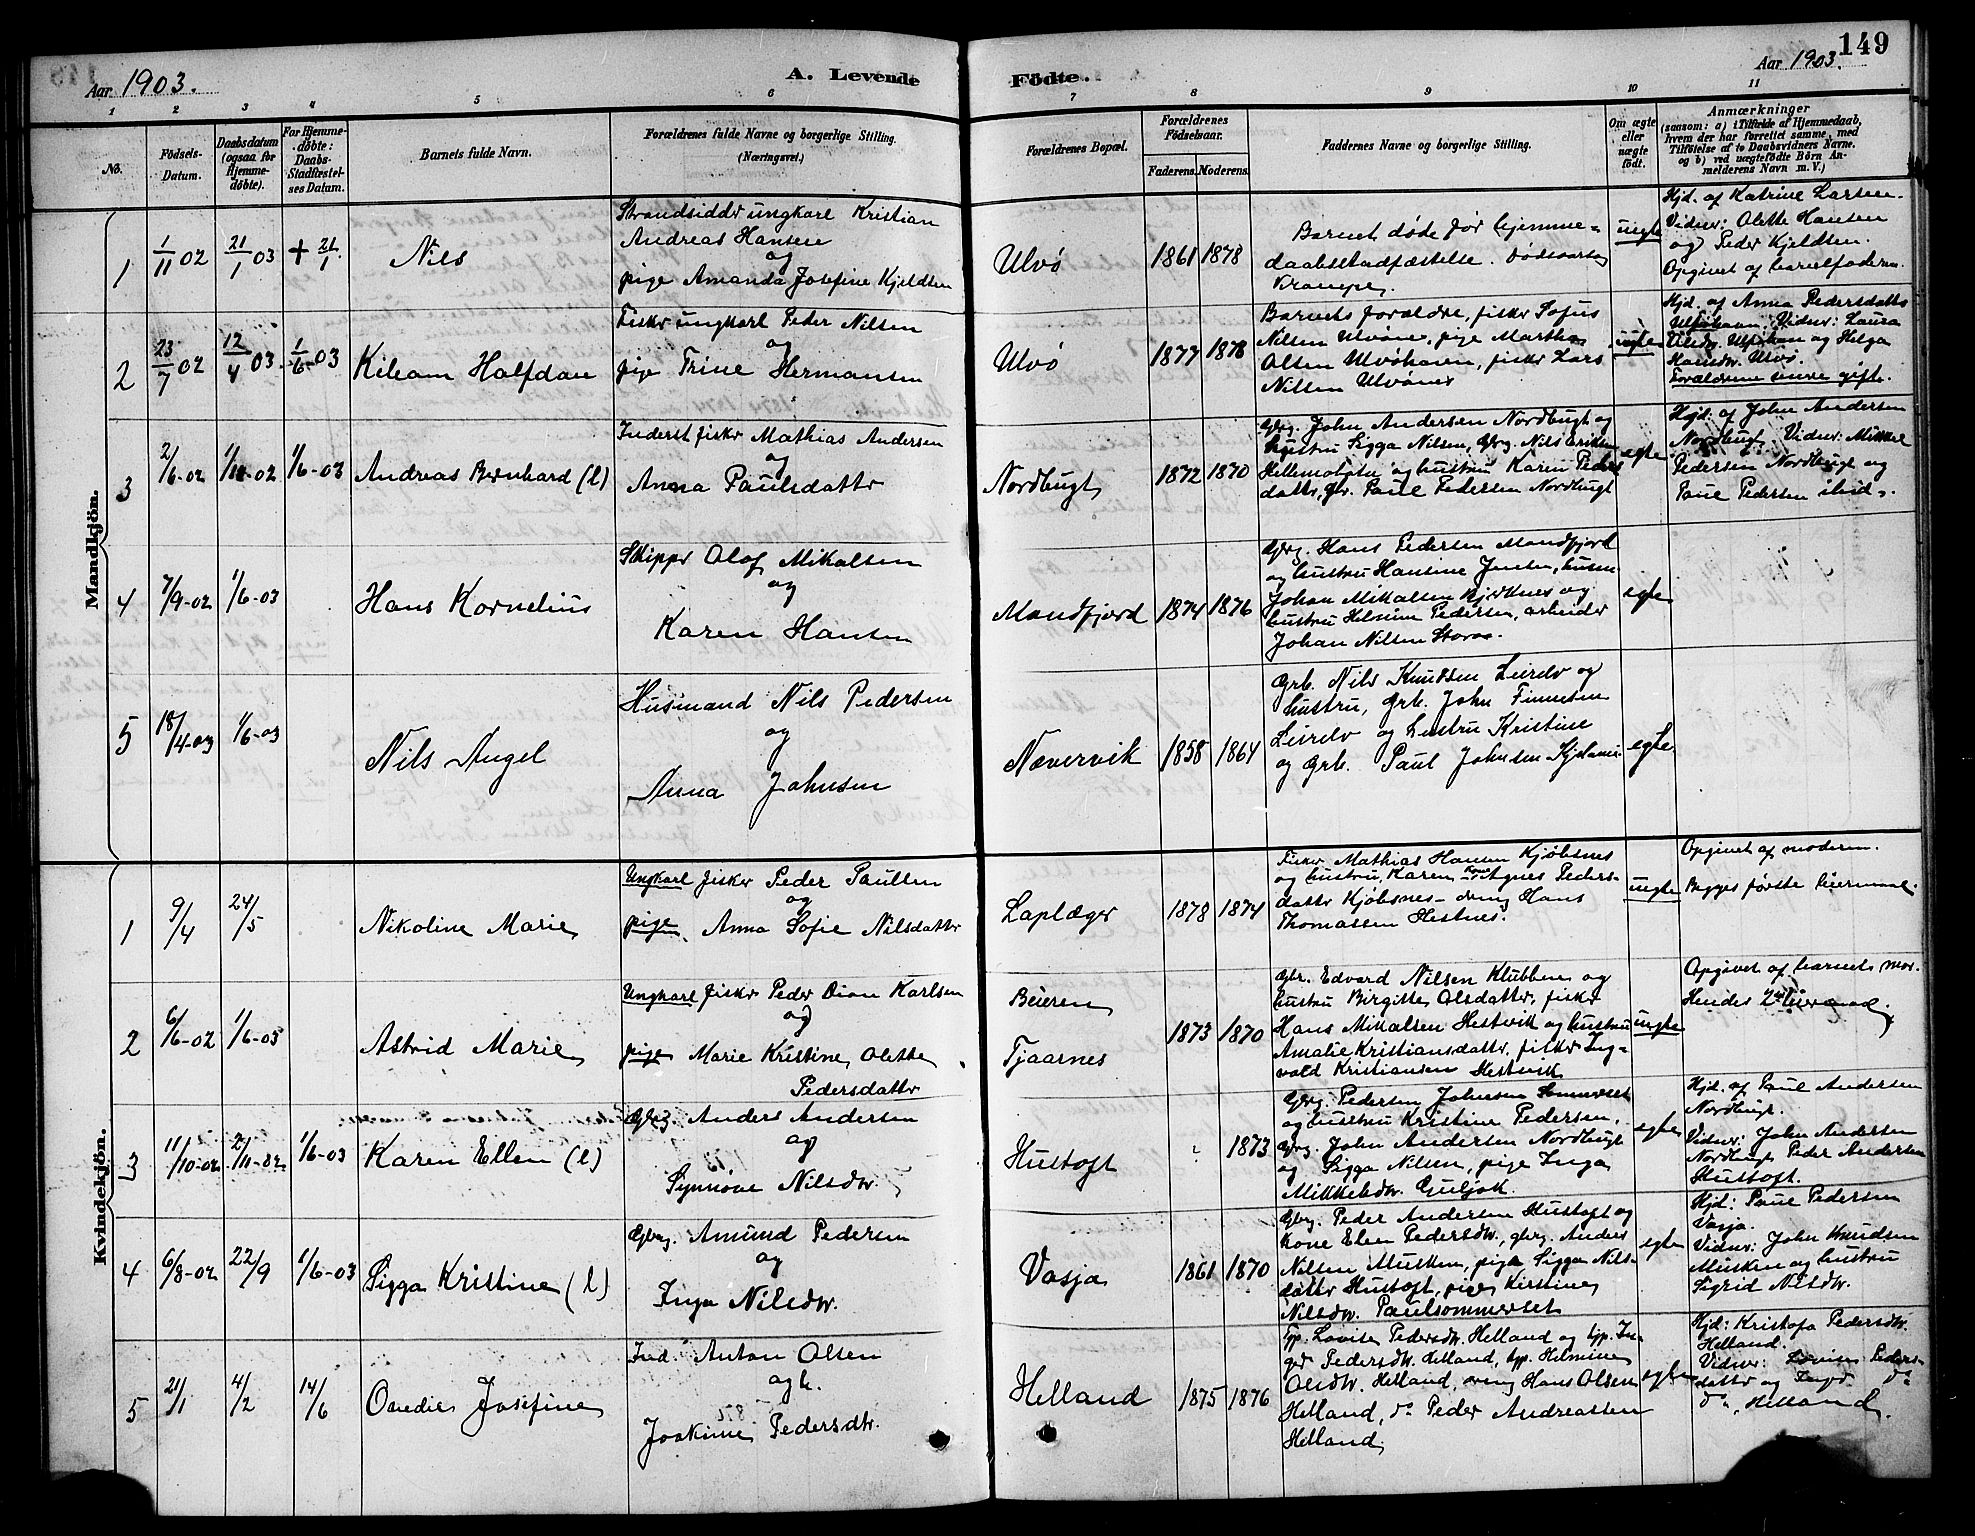 149
Aar 1903.
A. Levende
Födte.
Aar 1903.
1 2 3 4 5 6 7 8 9 10 11
No.
Födsels-
Datum.
Daabsdatum
(ogsaa for
Hjemme-
döbte).
For Hjemme-
döbte:
Daabs-
Stadfæstel-
ses Datum.
Barnets fulde Navn.
Forældrenes fulde Navne og borgerlige Stilling.
(Næringsvei.)
Forældrenes Bopæl.
Forældrenes
Födselsaar.
Faderens. Moderens.
Faddernes Navne og borgerlige Stilling.
Om ægte
eller
uægte
födt.
Anmærkninger
(saasom: a) i Tilfælde af Hjemmedaab,
hvem der har forrettet samme, med
Tilföielse af to Daabsvidners Navne.
og b) ved uægtefödte Börn An-
melderens Navn m. V.)
Mandkjön.
1
1/11 02
21/1 03
+ 21/1
Nils
Strandsidder ungkarl Kristian
Andreas Hansen
og
pige Amanda Josefine Kjeldsen
Ulvö
1861 1878
Barnet döde för hjemme-
daabsstadfæstelse. Dödsaarsag
Krampe.
uegte
Hjd. af Katrine Larsen.
Vidner: Olette Hansen
og Peder Kjeldsen.
Opgivet af barnefaderen.
2
23/7 02
12/4 03
1/6 03
Kileam Halfdan
Fisker ungkarl Peder Nilsen
og
pige Trine Hermansen
Ulvö
1877 1878
Barnets forældre, fisker Sofus
Nilsen Ulvöen, pige Martha
Olsen Ulvöhavn, fisker Lars
Nilsen Ulvönes
uegte
Hjd. af Anna Pedersdatter
Ulvöhavn. Vidner: Laura
Olsdtr. Ulvöhavn og Helga
Hansdtr. Ulvö.
Forældrene senere gifte.
3
2/6-02
1/11-02
1/6-03
Andreas Bernhard (l)
Inderst fisker Mathias Andersen
og
Anna Paulsdatter
Nordbugt
1872 1870
Gbrg. John Andersen Nordbugt og
hustru Sigga Nilsen, Gbrg. Nils Eriksen
Hellemobotn og hustru Karen Peders
datter, gbr. Paul Pedersen Nordbugt
egte
Hjd. af John Andersen
Nordbugt. Vidner: Mikkel
Pedersen Nordbugt og
Paul Pedersen ibid.
4
7/9-02
1/6-03
Hans Kornelius
Skipper Olof Mikalsen
og
Karen Hansen
Mandfjord
1874 1876
Gbrg. Hans Pedersen Mandfjord
og hustru Hansine Jensen, husm.
Johan Mikalsen Kjerknes og
hustru Helmine Pedersen, arbeider
Johan Nilsen Storaa.
egte
5
18/4-03
1/6-03
Nils Angel
Husmand Nils Pedersen
og
Anna Johnsen
Nævervik
1858 1864
Grb. Nils Knudsen Leirelv og
hustru, grb. John Finnesen
Leirelv og hustru Kristine
og grb. Paul Johnsen
egte
Kvindekjön.
1
9/4
24/5
Nikoline Marie
Ungkarl fisker Peder Paulsen
og
pige Anna Sofie Nilsdatter
Laplæger
1878 1874
Fisker Mathias Hansen Kjöbsnes
og hustru, Karen Agnes Peders-
datter Kjöbsnes - dreng Hans
Thomassen Hestnes.
uegte
Opgivet af moderen.
Begges første leiermaal.
2
6/6-02
1/6-03
Astrid Marie
Ungkarl fisker Peder Dion Karlsen
og
pige Marie Kristine Olette
Pedersdatter
Beieren
Tjaarnes
1873 1870
Gbr. Edvard Nilsen Klubben og
hustru Birgitte Olsdatter, fisker
Hans Mikalsen Hestvik og hustru
Amalie Kristiansdatter. fisker Ing-
vald Kristiansen Hestvik
uegte
Opgivet af barnets mor.
Hendes 2det leiermaal.
3
11/10-02
2/11-02
1/6-03
Karen Ellen (l)
Gbrg. Anders Andersen
og
Synnöve Nilsdtr.
Hustoft
" 1873
Gbrg. Pedersen Johnsen Sommerset
og hustru Kristine Pedersen,
Gbrg. John Andersen Nordbugt
og Sigga Nilsen, pige Inga
Mikkelsdtr. Guljok.
egte
Hjd. af Paul Andersen
Nordbugt.
Vidner: John Andersen
Nordbugt Peder Andersen
Hustoft.
4
6/8-02
22/9
1/6-03
Sigga Kristine (l)
Gbrg. Amund Pedersen
og
Inga Nilsdtr.
Vasja
1861 1870
Gbrg. Peder Andersen Hustoft og
kone Elen Pedersdtr., gbrg. Anders
Nilsen Musken, pige Sigga Nils-
datter Hustoft, pige Kirstine
Nilsdtr. Paulsommerset
egte
Hjd: Paul Pedersen
Vasja.
Vidner: John Knudsen
Musken og hustru
Sigrid Nilsdtr.
5
21/1
4/2
14/6
Ovedie Josefine
Ind. Anton Olsen
og h.
Joakime Pedersdtr.
Helland
1875 1876
tjp. Lovise Pedersdtr. Helland og tjp. In-
ger Pedersdtr. Helland, tjp. Helmine
Olsdtr. Helland, dreng Hans Olsen
Helland, do Peder Andreassen
Helland.
egte
Hjd: Kristofa Pedersdtr.
Helland.
Vidner: Lovise Peders-
datter og Inger do
do, Helland.